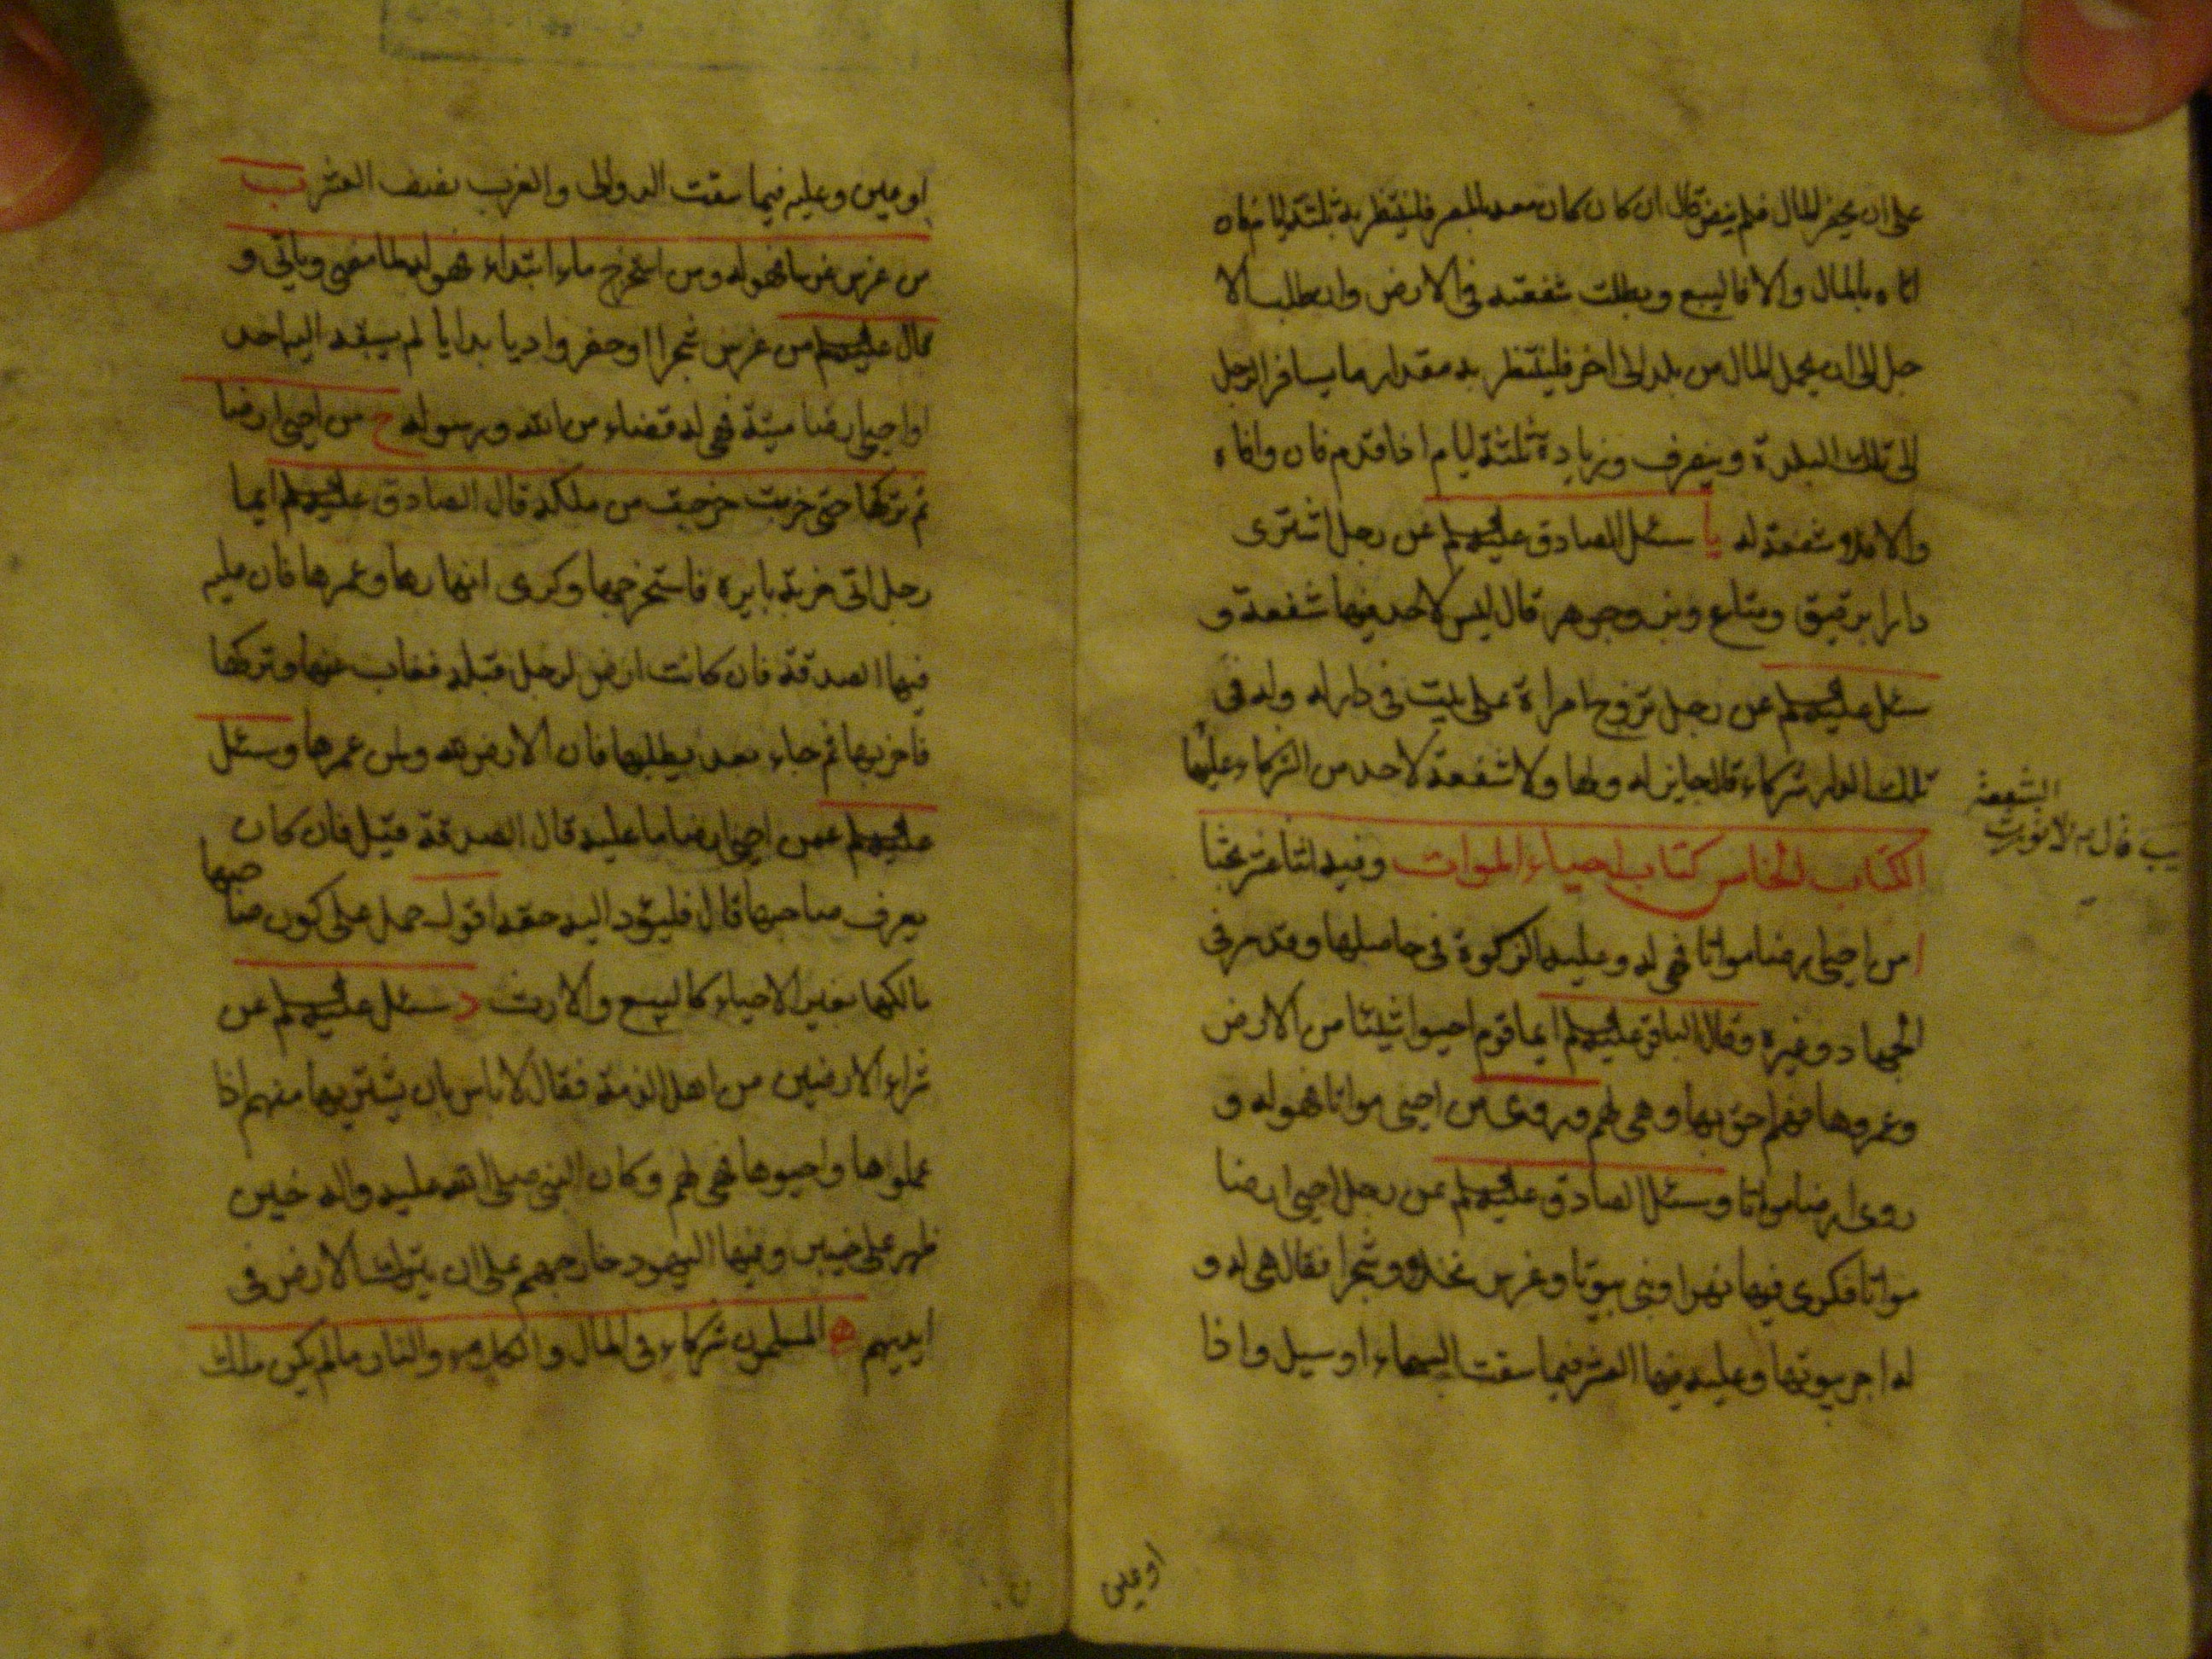 على ان يحضر المال فلم ينض قال ان كان كان معه بالمصر فلينتظر به ثلثة ايام فان
اتاه بالمال والا فاليبع وبطلت شفعته في الارض وان طلب الا
جل الى ان يحمل المال من بلد الى اخر فلينتظر به مقدار ما يسافر الرجل
الى تلك البلدة وينصرف وزيادة ثلثة ايام اذا قدم فان وافاه
والا فلا شفعة له يا سئل الصادق عليه السلم عن رجل اشترى
دارا برقيق ومتاع وبز وجوهر قال ليس لاحد فيها شفعة و
سئل عليه السلم عن رجل تزوج امراة على بيت في دار له وله في
تلك الدار شركاء قال جايز له ولها ولا شفعة لاحد من الشركاء عليها
الشفعة
يب قال م لا تورث
الكتاب الخامس كتاب احياء الموات وفيه اثنا عشر بحثا
ا من احيى ارضا مواتا فهي له وعليه الزكوة في حاصلها وقد مر في
الجهاد وغيره وقال الباقر عليه السلم ايما قوم احيوا شيئا من الارض
وعمروها فهم احق بها وهي لهم وروى من احيى مواتا فهو له و
روى ارضا مواتا وسئل الصادق عليه السلم عن رجل احيى ارضا
مواتا فكرى فيها نهرا وبنى بيوتا وغرس نخلا وشجرا فقال هي له و
له اجر بيوتها وعليه فيها العشر فيما سقت السماء او سيل واذا
او عين
او عين وعليه فيما سقت الدوالى والغرب نصف العشر ب
من غرس غرسا فهو له ومن استخرج ماء ابتداء فهو له
قال عليه السلم من غرس شجرا او حفر واديا بدايا لم يسبقه اليه احد
او احيى ارضا ميتة فهي له قضاء من الله ورسوله ج من احيى ارضا
ثم تركها حتى خربت خرجت من ملكه قال الصادق عليه السلم ايما
رجل اتى خربة بايرة فاستخرجها وكرى انهارها وعمرها فان عليه
فيها الصدقة فان كانت ارض لرجل قبله فغاب عنها وتركها
فاخربها ثم جاء بعد يطلبها فان الارض لله ولمن عمرها وسئل
عليه السلم عمن احيى ارضا ما عليه قال الصدقة قيل فان كان
يعرف صاحبها قال فليؤد اليه حقه اقول حمل على كون صاحبها
مالكها بغير الاحياء كالبيع والارث د سئل عليه السلم عن
شراء الارضين من اهل الذمة فقال لا باس بان يشتريها منهم اذا
عملوها واحيوها فهي لهم وكان النبي صلى الله عليه واله حين
ظهر على خيبر وفيها اليهود خارجهم على ان يترك الارض في
ايديهم ه المسلمون شركاء في الماء والكلاء والنار ما لم يكن ملك